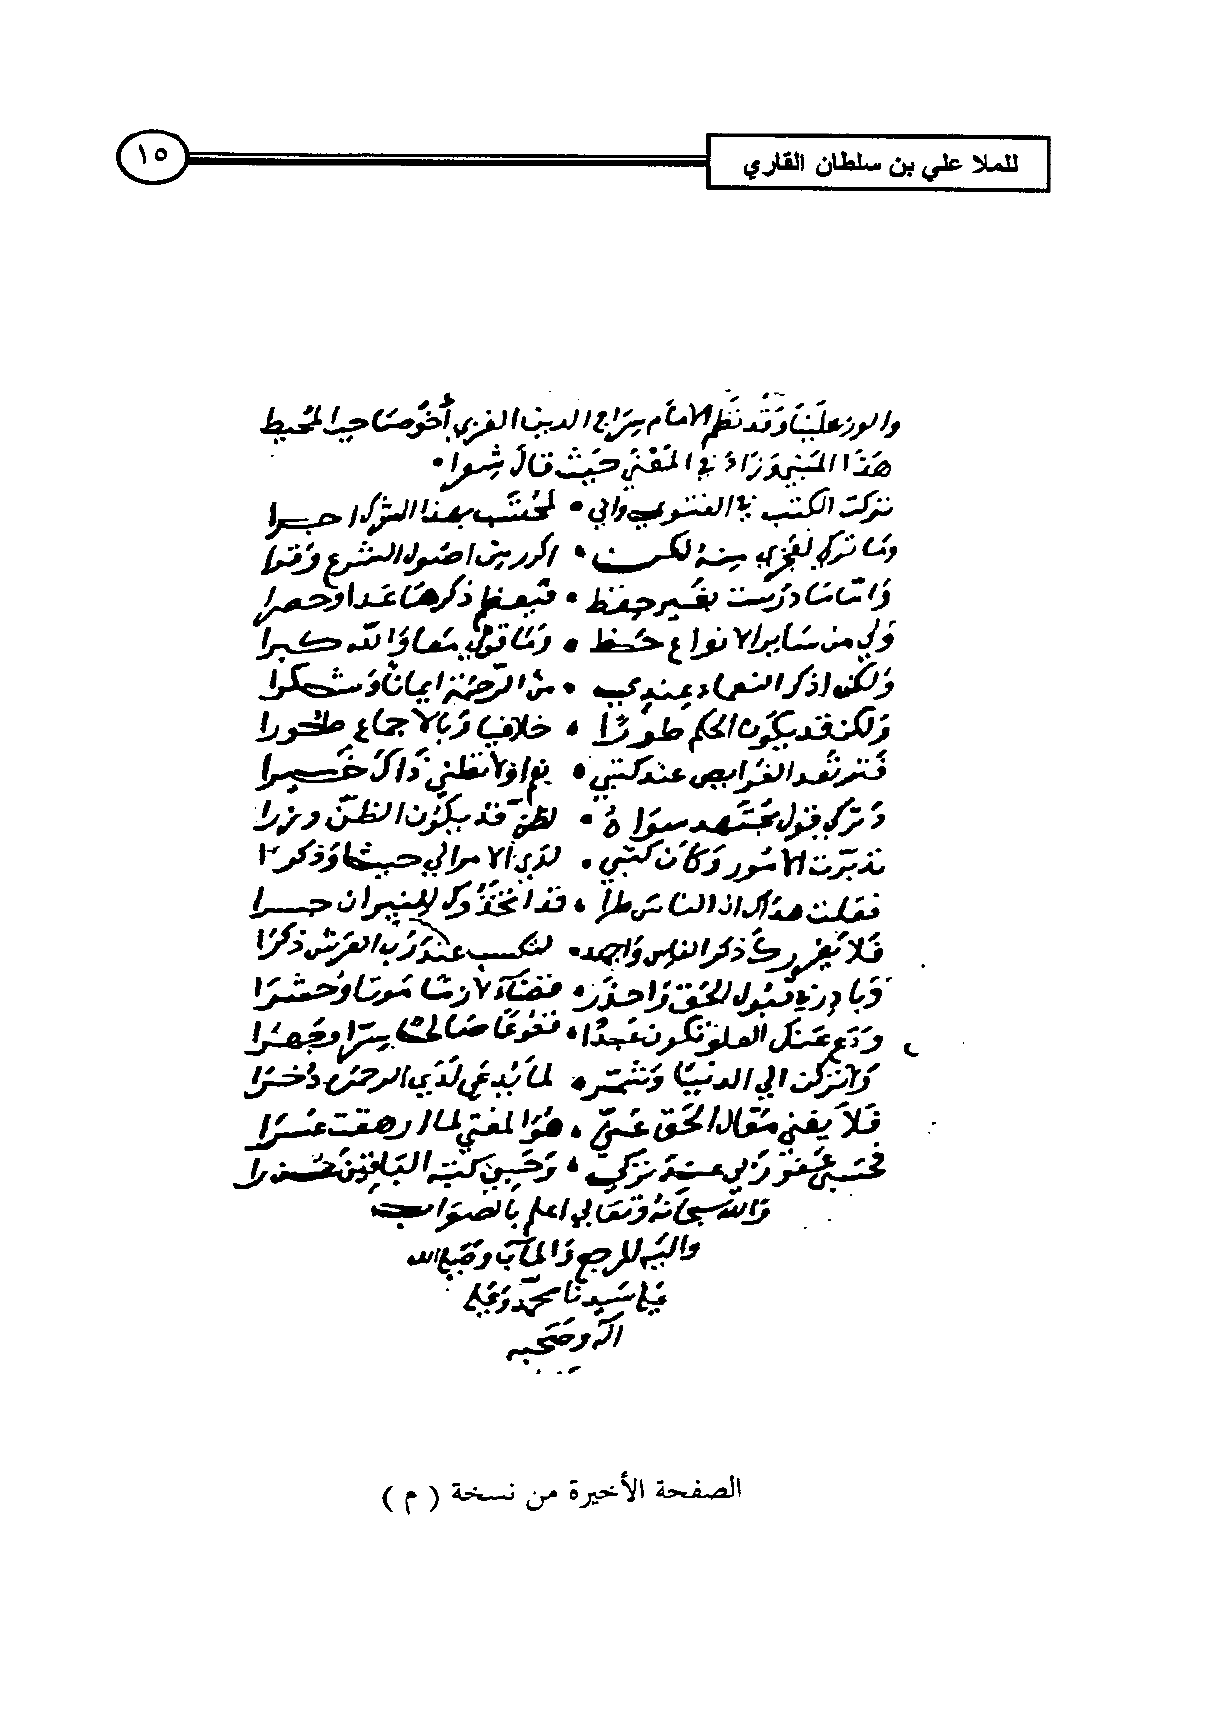 للملا علي بن سلطان القاري
١٥
والوزر علينا وقد نظم الامام سراج الدين الغزي أخو صاحب المحيط
هذا المبني وزاد في المعنى حيث قال شعرا
تركت الكتب في الفتوى واني • لمحتسب بهذا الترك اجرا
وما تركي لعجزي منه لكن • اكرر من اصول الشرع وقرا
درست بغير حفظ • ذكرها عدا وحصرا
ولي من ساير الانواع حظ • وما قولي معاذ الله كبرا
ولكن اذكر النعماء عندي • من الرحمن ايمانا وشكرا
ولكن قد يكون الحكم طورا • خلافيا وبالاجماع طورا
عند كتبي •
وتركي قول مجتهد سواه • لظن قد يكون الظن وزرا
تدبرت الامور وكان كتبي • لدي الامر الي حيثا وذكرا
فقلت هداك اذ الناس طرا • قد اتخذوك للنيران جسرا
فلا يغررك ذكر الناس واجهد • لتكسب عند رب العرش ذكرا
وبادر في قبول الحق واحذر • قضاء لازما موتا وحشرا
ودع عنك العلو تكون عبدا • قنوعا صالحا سرا وجهرا
ولا تركن الي الدنيا وشمر • لما يدعى لدي الرحمن ذخرا
فلا يغني مقال الخلق عني • هو المفتي لما ارهقت عسرا
فحسبي عفو ربي عند تركي •
والله سبحانه وتعالى اعلم بالصواب
واليه المرجع والمآب وصلى الله
على سيدنا محمد وعلى
آله وصحبه
الصفحة الأخيرة من نسخة ( م )